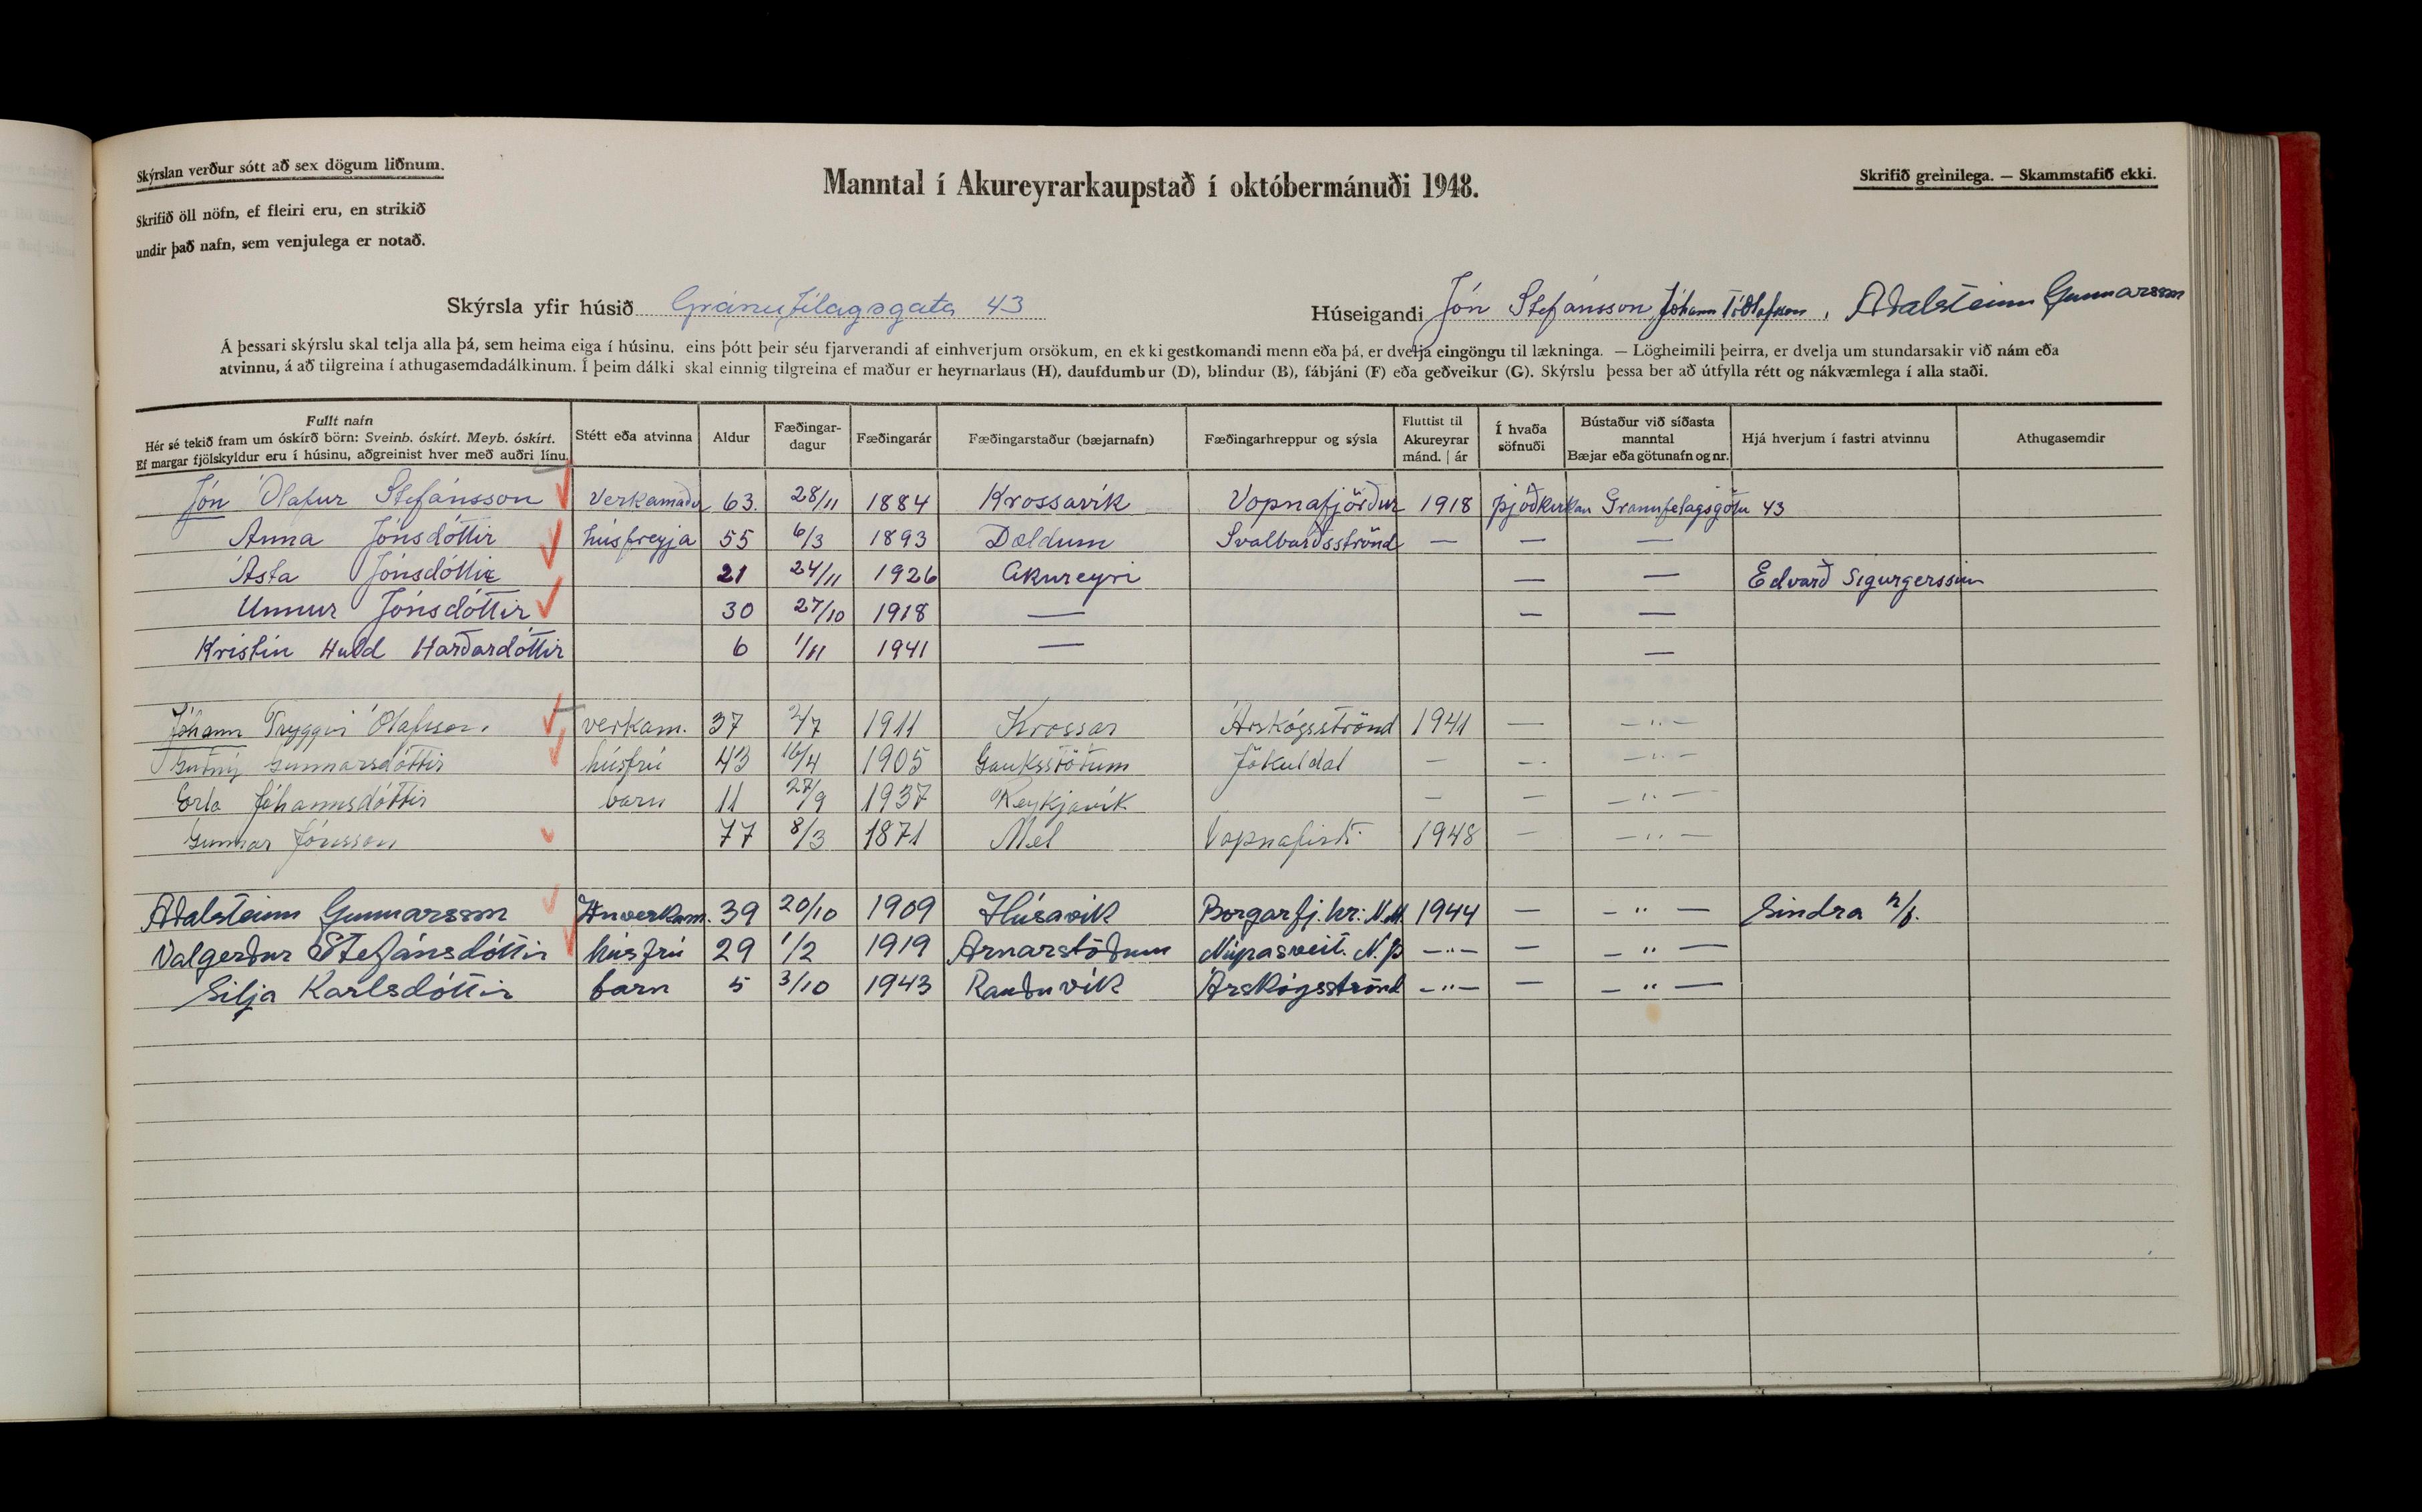 Skýrslan verður sótt að sex dögum liðnum.
Skrifið öll nöfn, ef fleiri eru, en strikið
undir það nafn, sem venjulega er notað.
Manntal í Akureyrarkaupstað í októbermánuði 1948.
Skrifið greinilega. — Skammstafið ekki.
Skýrsla yfir húsið Gránufélagsgata 43
Húseigandi Jón Stefánsson, Jóhann T. Ólafsson, Aðalsteinn Gunnarsson
Á þessari skýrslu skal telja alla þá, sem heima eiga í húsinu, eins þótt þeir séu fjarverandi af einhverjum orsökum, en ekki gestkomandi menn eða þá, er dvelja eingöngu til lækninga. — Lögheimili þeirra, er dvelja um stundarsakir við nám eða
atvinnu, á að tilgreina í athugasemdadálkinum. Í þeim dálki skal einnig tilgreina ef maður er heyrnarlaus (H), daufdumbur (D), blindur (B), fábjáni (F) eða geðveikur (G). Skýrslu þessa ber að útfylla rétt og nákvæmlega í alla staði.
Fullt nafn
Hér sé tekið fram um óskírð börn: Sveinb. óskírt. Meyb. óskírt.
Ef margar fjölskyldur eru í húsinu, aðgreinist hver með auðri línu.
Stétt eða atvinna
Aldur
Fæðingar-
dagur
Fæðingarár
Fæðingarstaður (bæjarnafn)
Fæðingarhreppur og sýsla
Fluttist til
Akureyrar
mánd. | ár
Í hvaða
söfnuði
Bústaður við síðasta
manntal
Bæjar eða götunafn og nr.
Hjá hverjum í fastri atvinnu
Athugasemdir
Jón Ólafur Stefánsson Verkamaður 63. 28/11 1884 Krossavík Vopnafjörður 1918 þjóðkirkan Granufelagsgötu 43
Anna Jónsdóttir húsfreyja 55 6/3 1893 Dældum Svalbarðsströnd — — —
Ásta Jónsdóttir 21 24/11 1926 Akureyri — — Edvarð Sigurgerssun
Unnur Jónsdóttir 30 27/10 1918 — — —
Kristín Huld Harðardóttir 6 1/11 1941 — —
Jóhann Tryggvi Ólafsson. verkam. 37 2/7 1911 Krossar Árskógsströnd 1941 — — " —
Guðný Gunnarsdóttir húsfrú 43 16/4 1905 Gauksstöðum Jökuldal — — — " —
Erla Jóhannsdóttir barn 11 27/9 1937 Reykjavík — — — " —
Gunnar Jónsson 77 8/3 1871 Mel Vopnafirði 1948 — — " —
Aðalsteinn Gunnarsson Iðnverkam. 39 20/10 1909 Húsavík Borgarfj. hr: N.M. 1944 — — " — Sindra h/f.
Valgerður Stefánsdóttir húsfrú 29 1/2 1919 Arnarstöðum Núpasveit. N.Þ —"— — — " —
Silja Karlsdóttir barn 5 3/10 1943 Rauðuvík Árskógsströnd —"— — — " —